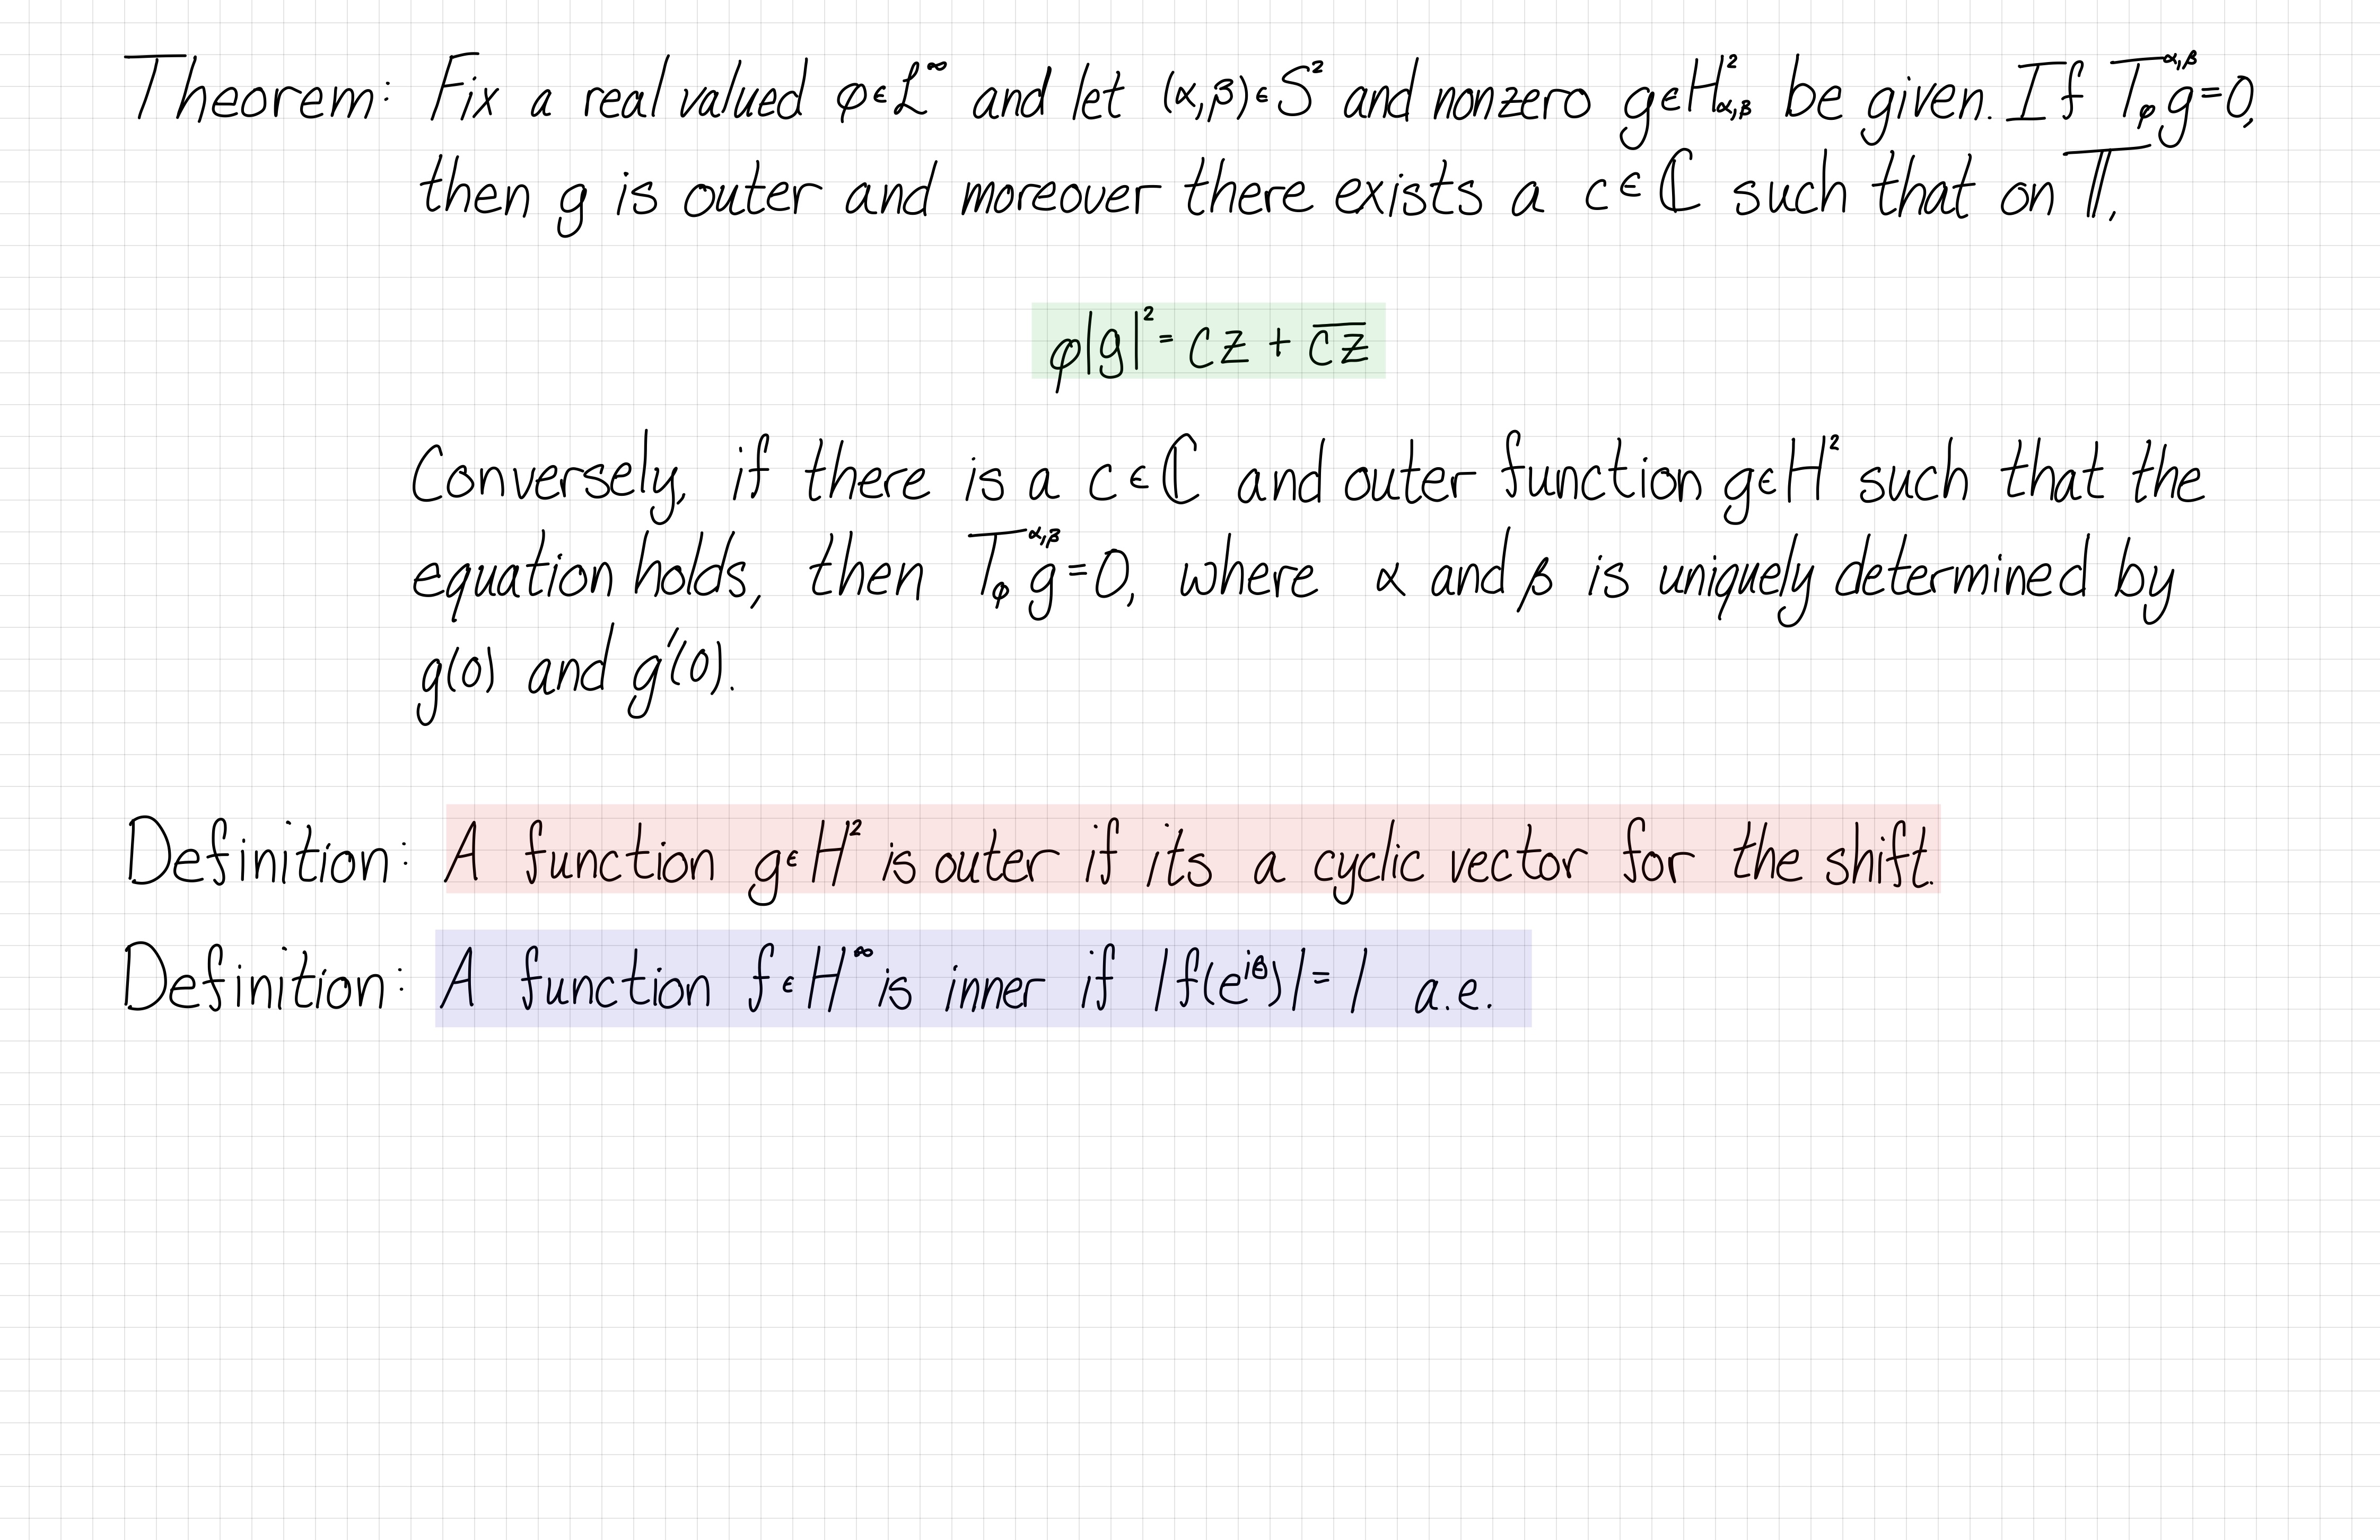 Theorem: Fix a real valued φ∈L^∞ and let (α,β)∈S² and nonzero g∈H²_{α,β} be given. If T_φ^{α,β}g=0,
then g is outer and moreover there exists a c∈ℂ such that on 𝕋,
φ|g|² = cz + \overline{cz}
Conversely, if there is a c∈ℂ and outer function g∈H² such that the
equation holds, then T_φ^{α,β}g=0, where α and β is uniquely determined by
g(0) and g′(0).
Definition: A function g∈H² is outer if its a cyclic vector for the shift.
Definition: A function f∈H^∞ is inner if |f(e^{iθ})|=1 a.e.